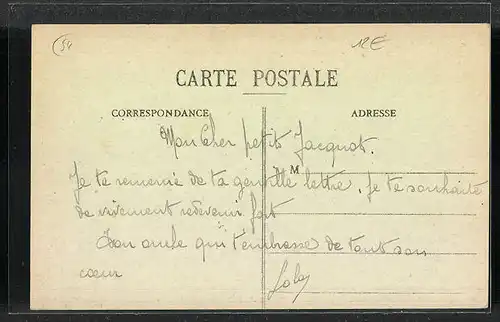 54
12E
CARTE POSTALE
CORRESPONDANCE
ADRESSE
Mon Cher petit Jacquot.
M
Je te remercie de ta gentille lettre. Je te souhaite
de vivement redevenir fort
Ton oncle qui t'embrasse de tout son
cœur